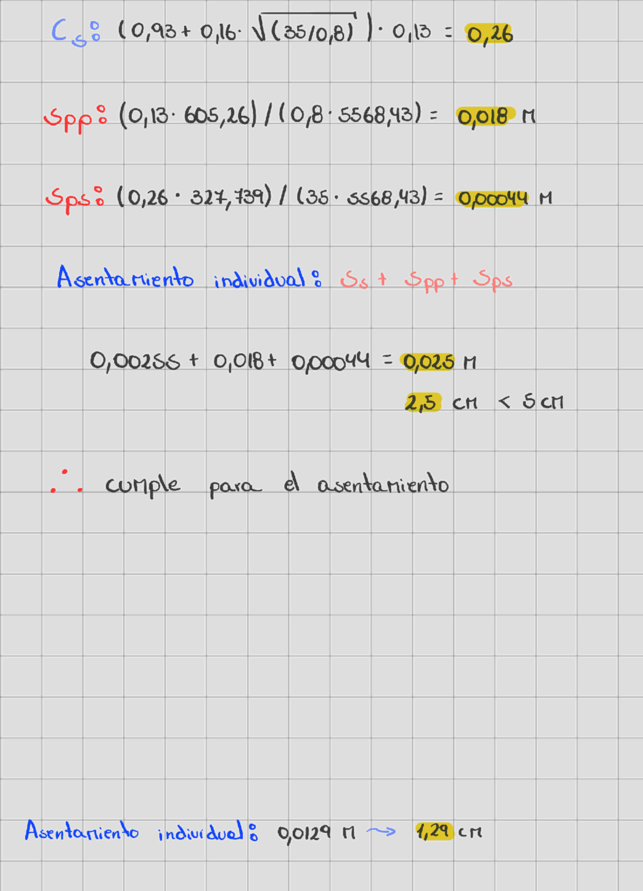 Cs: (0,93 + 0,16 · √(35/0,8)) · 0,13 = 0,26
Spp: (0,13 · 605,26) / (0,8 · 5568,43) = 0,018 M
Sps: (0,26 · 327,739) / (35 · 5568,43) = 0,00044 M
Asentamiento individual: Ss + Spp + Sps
0,00255 + 0,018 + 0,00044 = 0,025 M
2,5 cm < 5 cm
∴ cumple para el asentamiento
Asentamiento individual: 0,0129 M → 1,29 cm